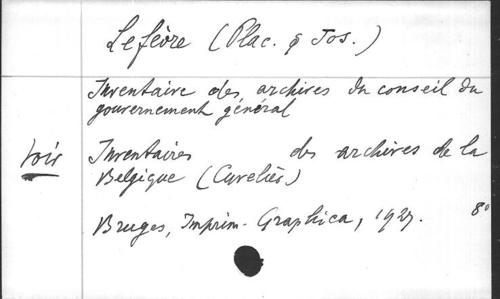 Lefèvre (Plac. & Jos.)
Inventaire des archives du conseil du
gouvernement général
Voir Inventaires des archives de la
Belgique (Cuvelier)
Bruges, Imprim. Graphica, 1925. 8°